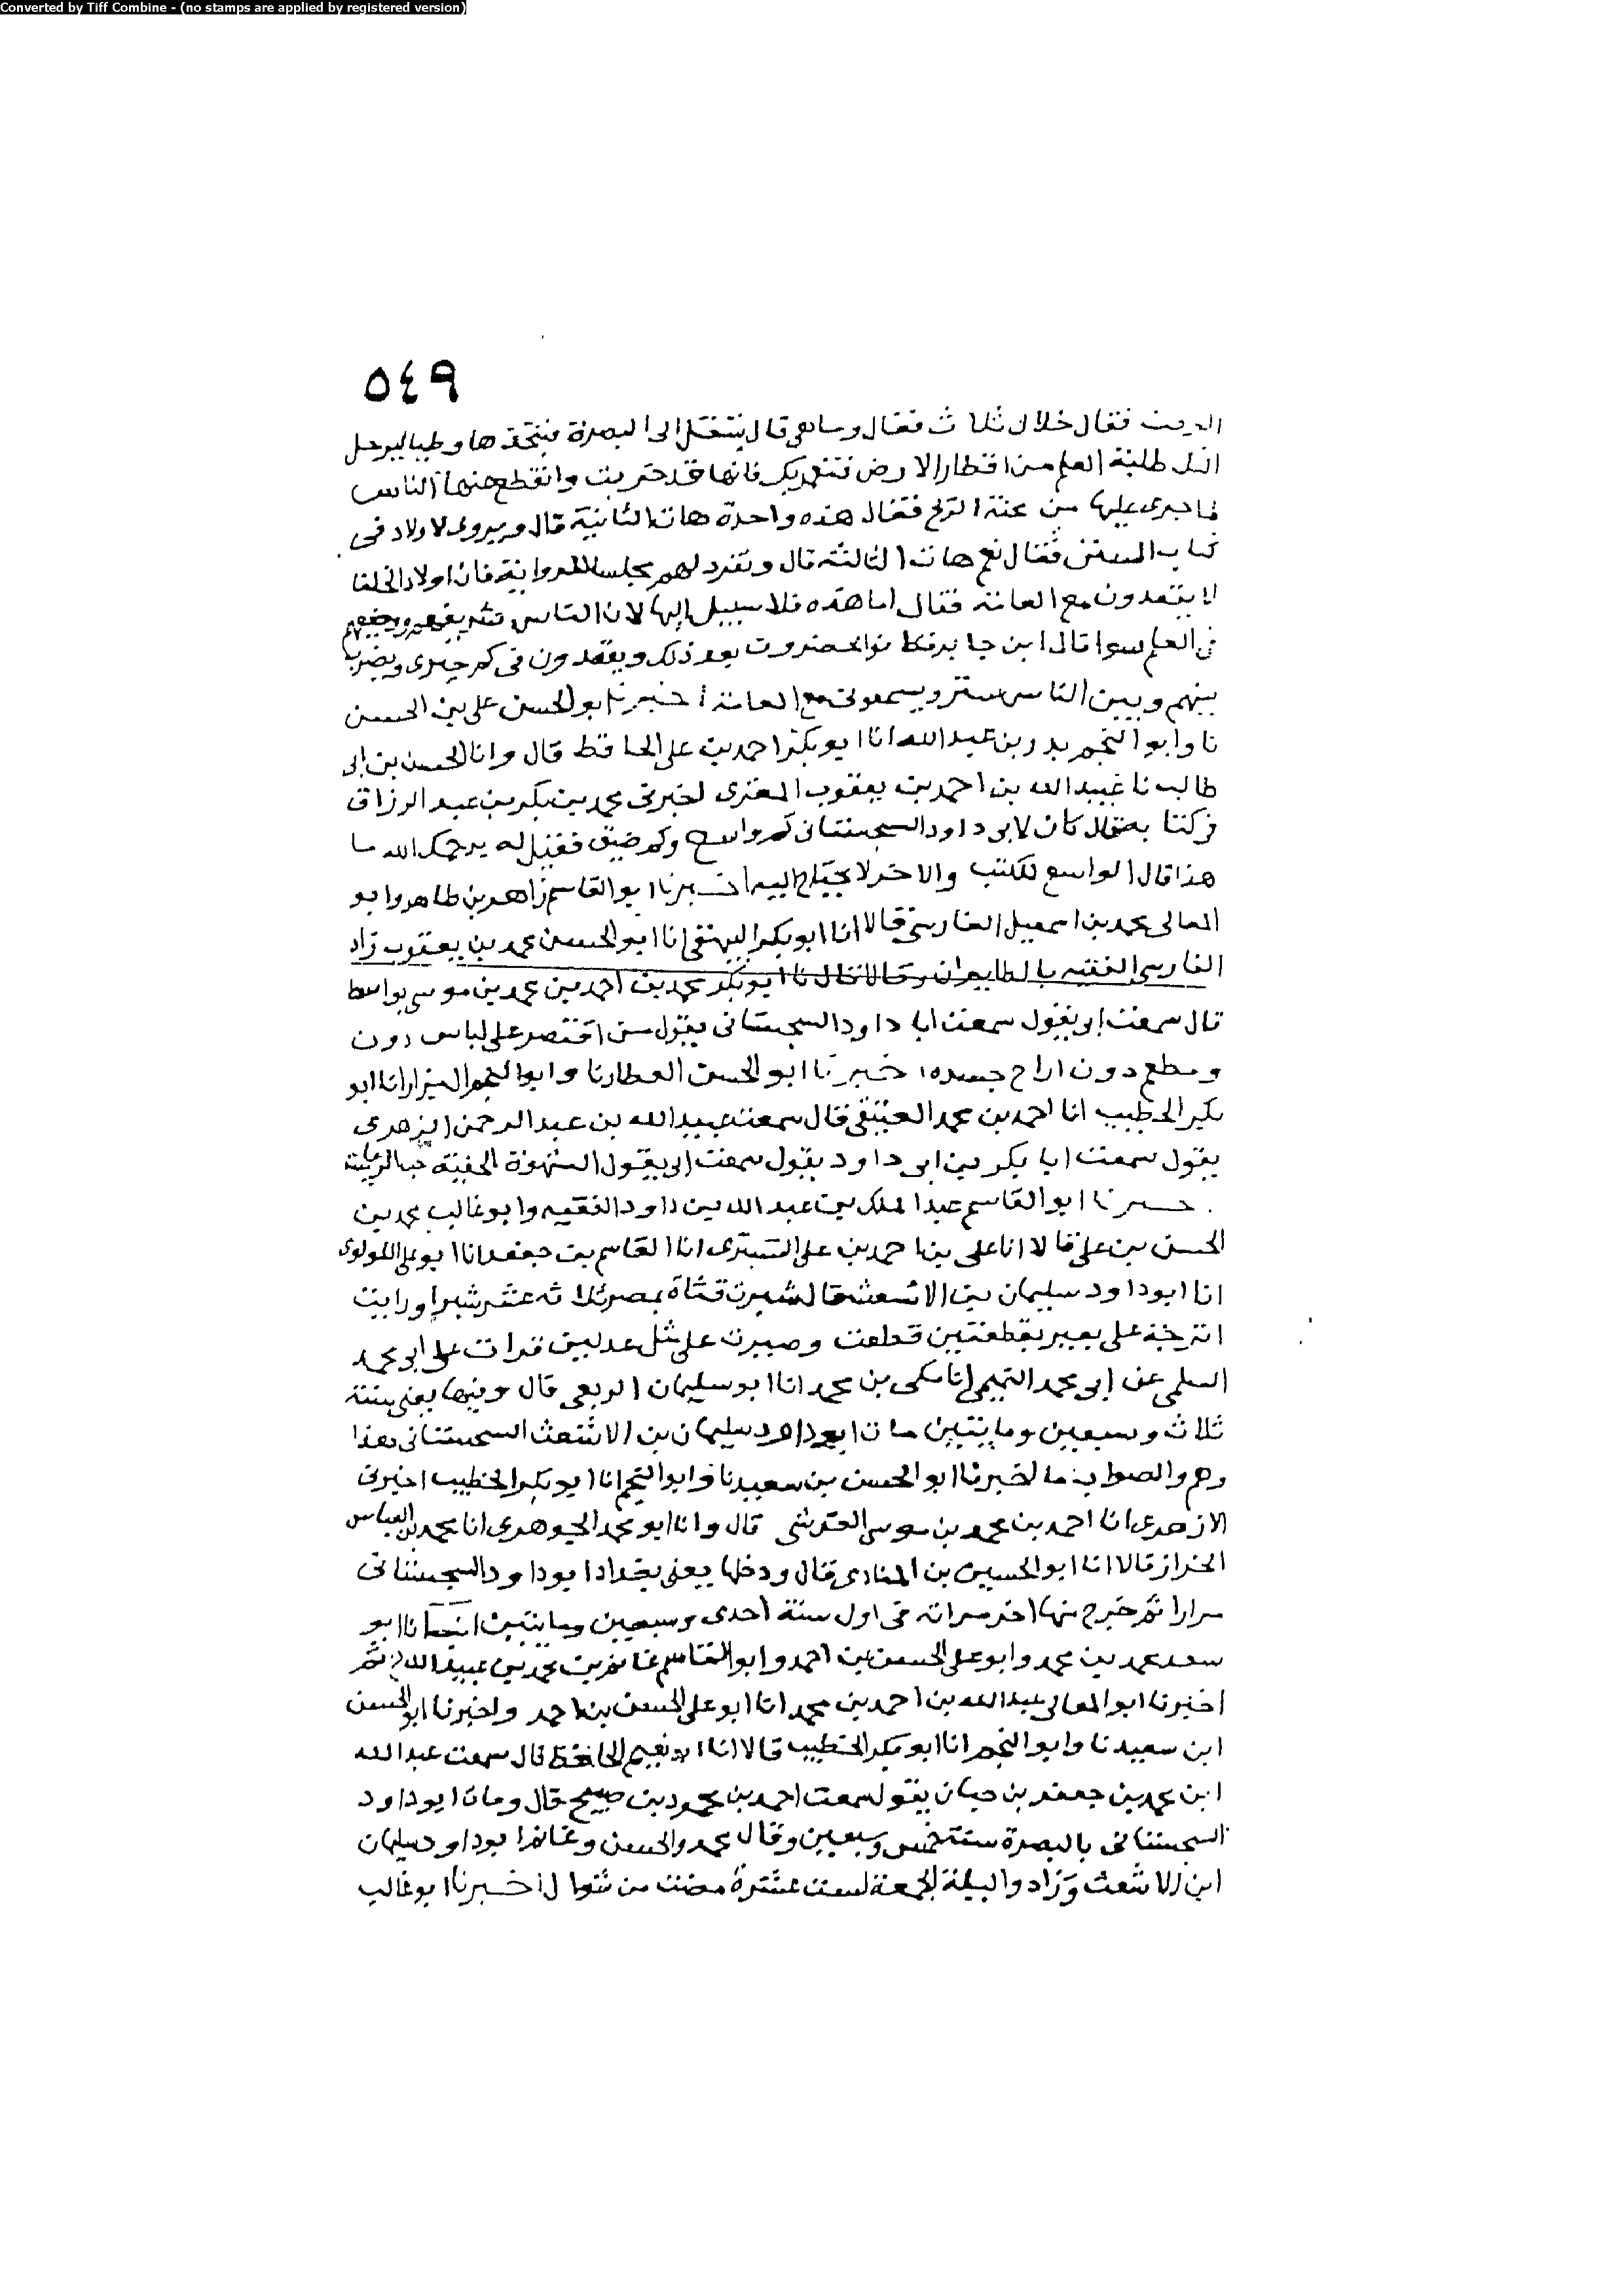 Converted by Tiff Combine - (no stamps are applied by registered version)
٥٤٩
الوقت فقال خلال ثلاث فقال وما هي قال تنتقل الى البصرة فتتخذها وطنا ليرحل
اليك طلبة العلم من اقطار الارض فتعمر بك فانها قد خربت وانقطع عنها الناس
لما جرى عليها من محنة الزنج فقال هذه واحدة هات الثانية قال وتروي لاولادي
كتاب السنن فقال نعم هات الثالثة قال وتفرد لهم مجلسا للرواية فان اولاد الخلفا
لا يقعدون مع العامة فقال اما هذه فلا سبيل اليها لان الناس شريفهم ووضيعهم
في العلم سوا قال ابن جابر فكانوا يحضرون بعد ذلك ويقعدون في كم حيرى ويضرب
بينهم وبين الناس ستر ويسمعون مع العامة اخبرنا ابو الحسن علي بن الحسن
نا وابو النجم بدر بن عبد الله انا ابو بكر احمد بن علي الحافظ قال وانا الحسن بن ابي
طالب نا عبيد الله بن احمد بن يعقوب المقرى اخبرني محمد بن بكر بن عبد الرزاق
في كتابه قال كان لابي داود السجستاني كم واسع وكم ضيق فقيل له يرحمك الله ما
هذا قال الواسع للكتب والاخر لا يحتاج اليه اخبرنا ابو القاسم زاهر بن طاهر وابو
المعالي محمد بن اسمعيل الفارسي قالا انا ابو بكر البيهقي انا ابو الحسين محمد بن يعقوب زاد
الفارسي الفقيه بالطابران وقالا قال نا ابو بكر محمد بن احمد بن محمد بن موسى بواسط
قال سمعت ابي يقول سمعت ابا داود السجستاني يقول من اقتصر على لباس دون
ومطعم دون اراح جسده اخبرنا ابو الحسن العطار نا وابو النجم البزار انا ابو
بكر الخطيب انا احمد بن محمد العتيقي قال سمعت عبيد الله بن عبد الرحمن الزهري
يقول سمعت ابا بكر بن ابي داود يقول سمعت ابي يقول الشهوة الخفية حب الرياسة
اخبرنا ابو القاسم عبد الملك بن عبد الله بن داود الفقيه وابو غالب محمد بن
الحسن بن علي قالا انا علي بن احمد بن علي التستري انا القاسم بن جعفر انا ابو علي اللولوى
انا ابو داود سليمان بن الاشعث قال شبرت قثاة بمصر ثلاثه عشر شبرا ورايت
اترجة على بعير بقطعتين قطعت وصيرت على مثل عدلين قرات على ابي محمد
السلمي عن ابي محمد التميمي انا مكي بن محمد انا ابو سليمان الربعي قال وفيها يعني سنة
ثلاث وسبعين ومايتين مات ابو داود سليمان بن الاشعث السجستاني هذا
وهم والصواب ما اخبرنا ابو الحسن بن سعيد نا وابو النجم انا ابو بكر الخطيب اخبرني
الازهرى انا احمد بن محمد بن موسى القرشي قال وانا ابو محمد الجوهرى انا محمد بن العباس
الخزاز قالا انا ابو الحسين بن المنادي قال ودخلها يعني بغداد ابو داود السجستاني
مرارا ثم خرج منها اخر مراته في اول سنة احدى وسبعين ومايتين انبانا ابو
سعد محمد بن محمد وابو علي الحسن بن احمد وابو القاسم غانم بن محمد بن عبيد الله ثم
اخبرنا ابو المعالي عبد الله بن احمد بن محمد انا ابو علي الحسن بن احمد واخبرنا ابو الحسن
ابن سعيد نا وابو النجم انا ابو بكر الخطيب قالا انا ابو نعيم الحافظ قال سمعت عبد الله
ابن محمد بن جعفر بن حيان يقول سمعت احمد بن محمود بن صبيح قال ومات ابو داود
السجستاني بالبصرة سنة خمس وسبعين وقال محمد والحسن وغانم ابو داود سليمان
ابن الاشعث وزادوا ليلة الجمعة لست عشرة مضت من شوال اخبرنا ابو غالب